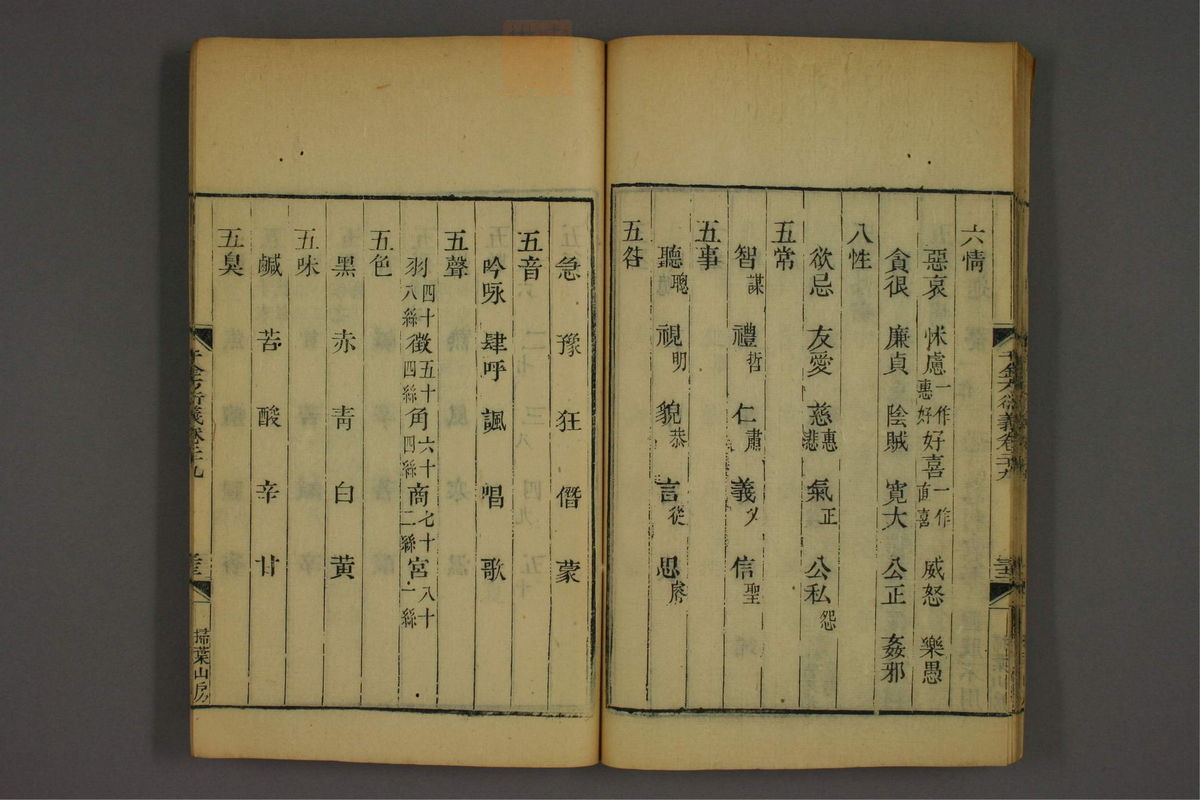 六情
惡哀 怵慮一作惠好 好喜一作直喜 威怒 樂愚
貪很 廉貞 陰賊 寬大 公正 姦邪
八性
欲忌 友愛 慈惠悲 氣正 公私怨
五常
智謀 禮哲 仁肅 義乂 信聖
五事
聽聰 視明 貌恭 言從 思睿
五咎
千金方衍義卷二十九
三三
急 豫 狂 僭 蒙
五音
吟咏 肆呼 諷 唱 歌
五聲
羽四十八絲 徵五十四絲 角六十四絲 商七十二絲 宮八十一絲
五色
黑 赤 靑 白 黃
五味
鹹 苦 酸 辛 甘
五臭
千金方衍義卷二十九
三三
掃葉山房